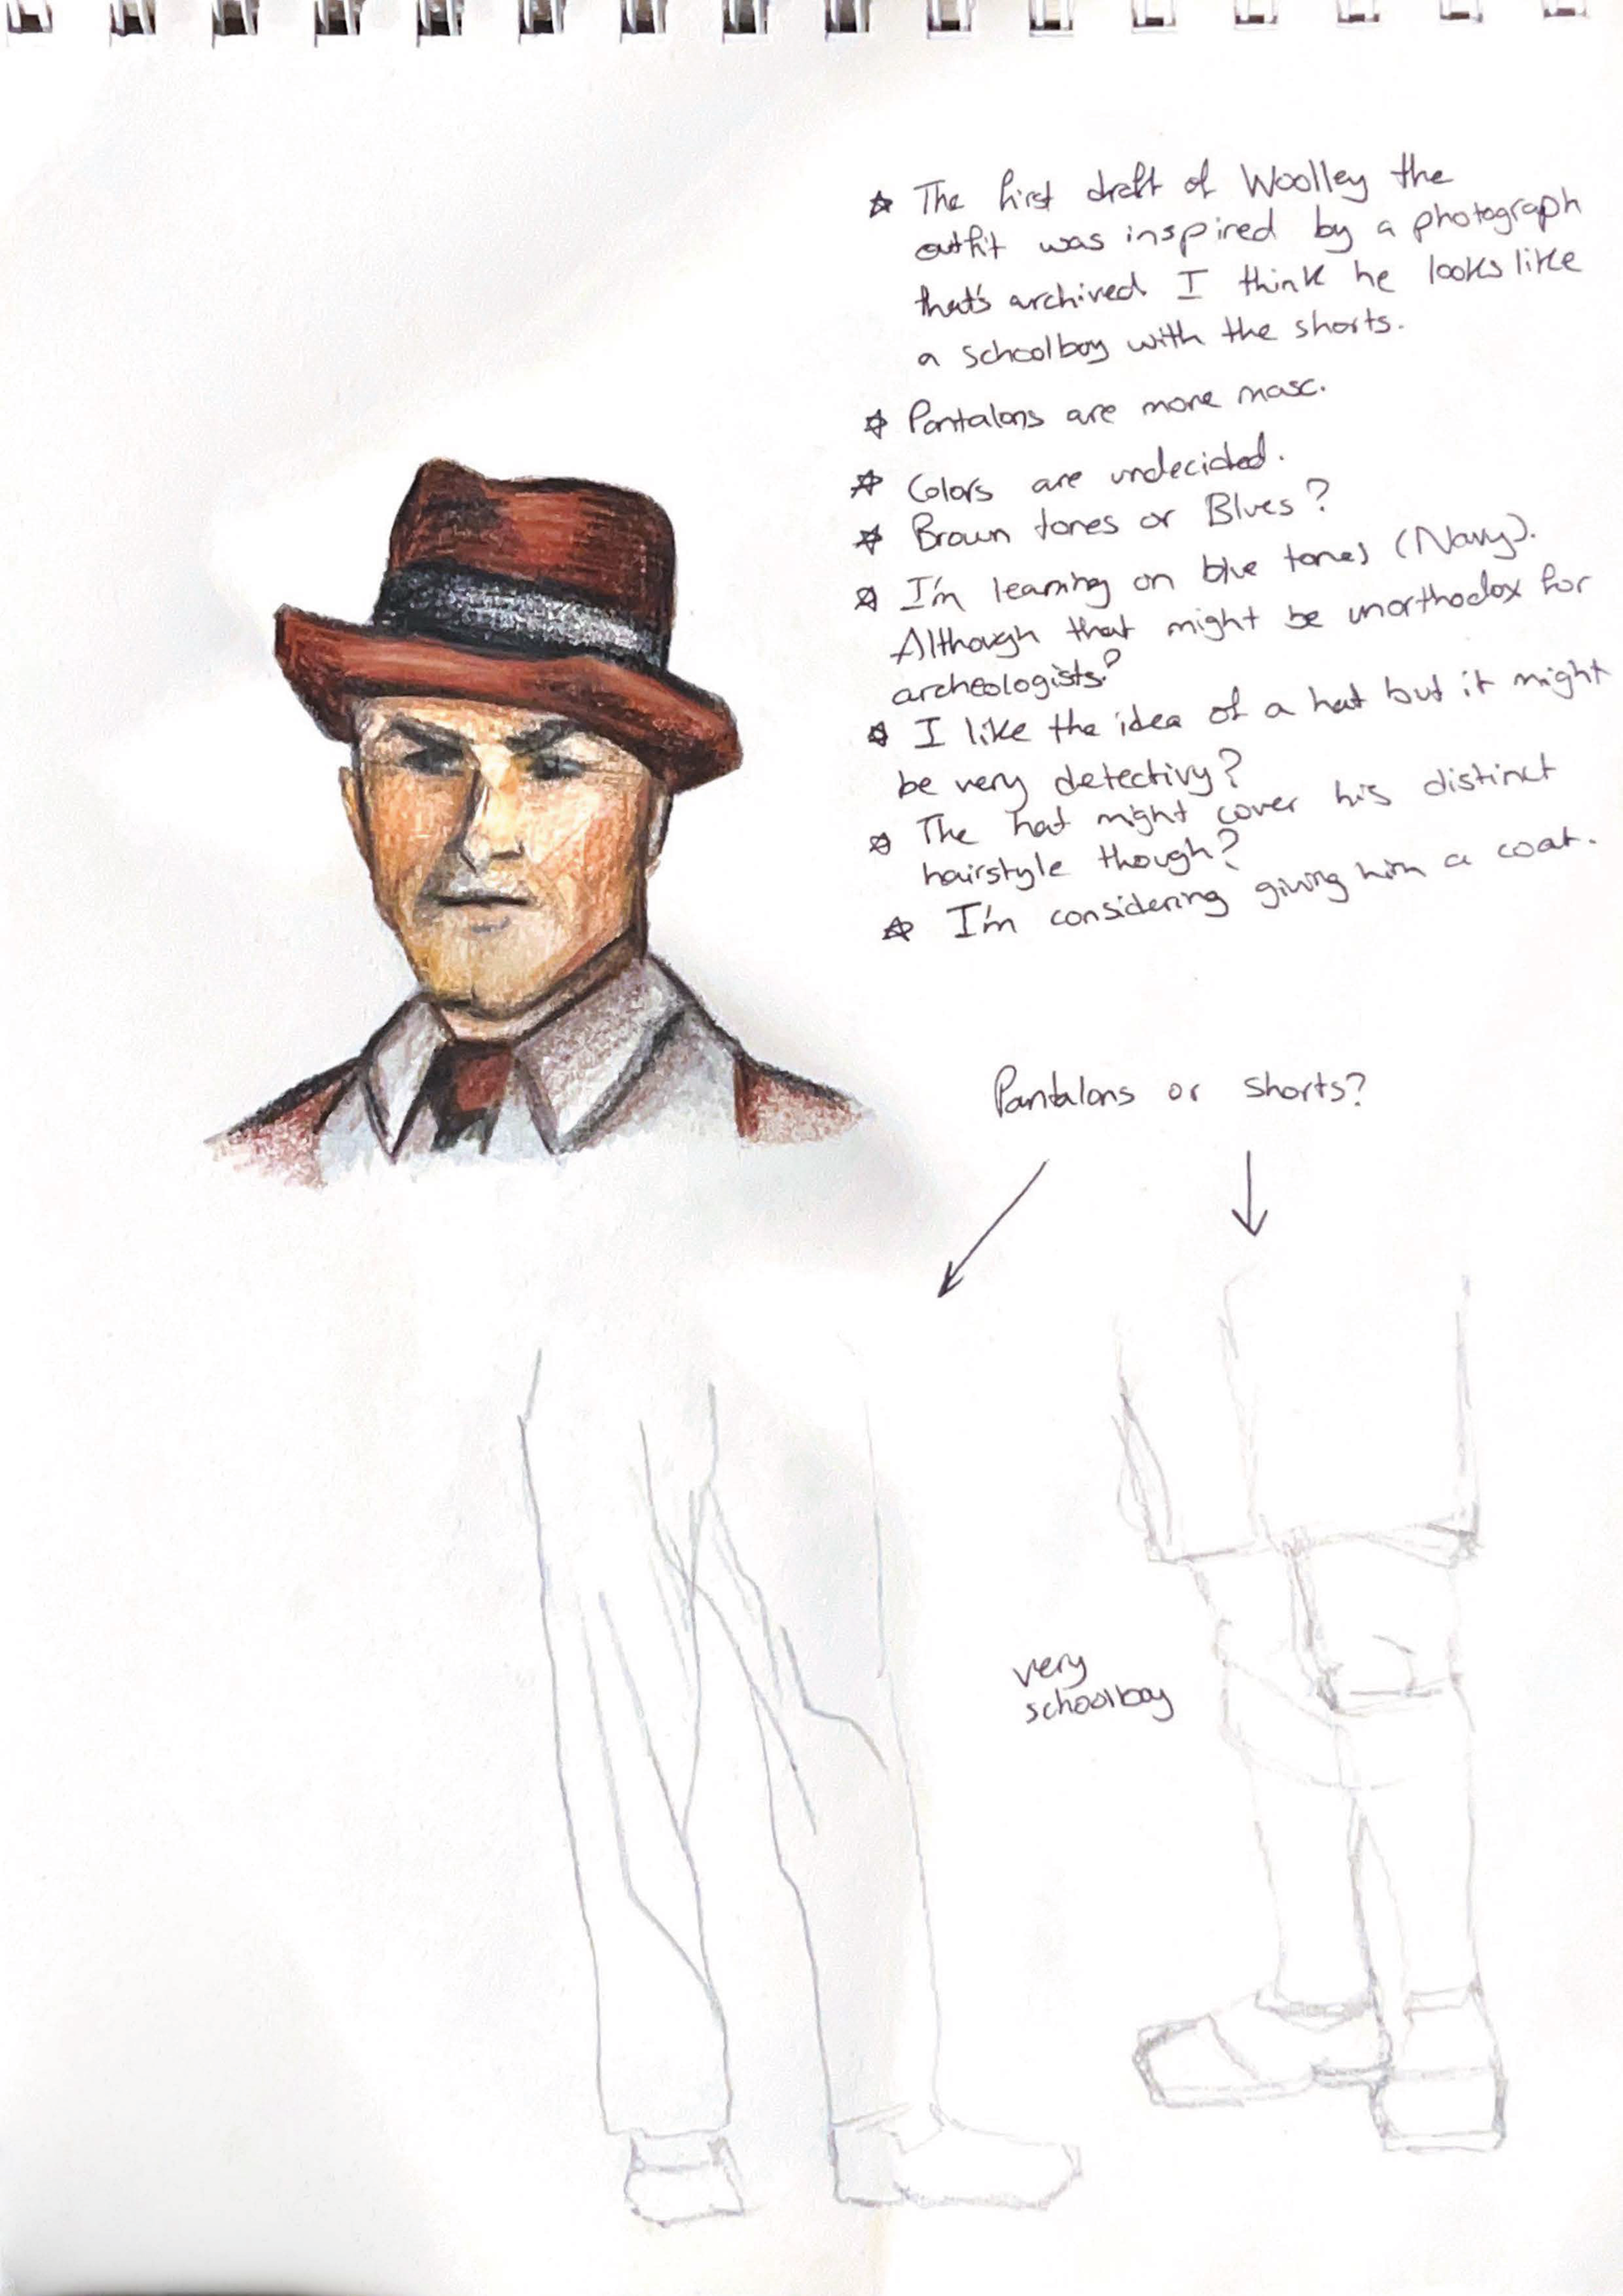 ☆ The first draft of Woolley the
outfit was inspired by a photograph
that's archived I think he looks like
a schoolboy with the shorts.
☆ Pantalons are more masc.
☆ Colors are undecided.
☆ Brown tones or Blues?
☆ I'm leaning on blue tones (Navy).
Although that might be unorthodox for
archeologists?
☆ I like the idea of a hat but it might
be very detectivy?
☆ The hat might cover his distinct
hairstyle though?
☆ I'm considering giving him a coat.
Pantalons or shorts?
very
schoolboy